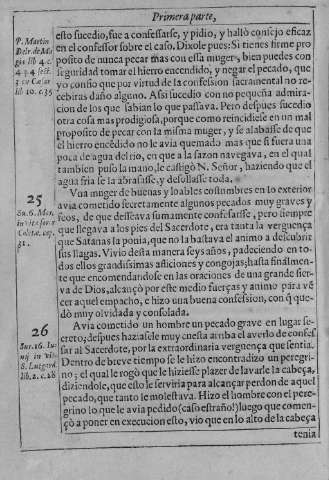 Primera parte,
esto sucedio, fue a confessarse, y pidio, y hallò consejo eficaz
en el confessor sobre el caso. Dixole pues: Si tienes firme pro
posito de nunca pecar mas con essa muger, bien puedes con
seguridad tomar el hierro encendido, y negar el pecado, que
yo confio que por virtud de la confession sacramental no re-
cebiras daño alguno. Assi sucedio con no pequeña admira-
cion de los que sabian lo que passava. Pero despues sucedio
otra cosa mas prodigiosa, porque como reincidiese en un mal
proposito de pecar con la misma muger, y se alabasse de que
el hierro encēdido no le avia quemado mas que si fuera una
poca de agua del rio, en que a la sazon navegava, en el qual
tambien puso la mano, le castigò N. Señor, haziendo que el
agua fria se la abrasasse, y desollasse toda.
Vna muger de buenas y loables costumbres en lo exterior
avia cometido secretamente algunos pecados muy graves y
feos, de que desseava sumamente confessarse, pero siempre
que llegava a los pies del Sacerdote, era tanta la verguença
que Satanas la ponia, que no la bastava el animo a descubrir
sus llagas. Vivio desta manera seys años, padeciendo en to-
dos ellos grandissimas aflicciones y congojas; hasta finalmen-
te que encomendandose en las oraciones de una grande sier-
va de Dios, alcançò por este medio fuerças y animo para vē
cer aquel empacho, e hizo una buena confession, con q̃ que-
dò muy olvidada y consolada.
Avia cometido un hombre un pecado grave en lugar se-
creto; despues haziasele muy cuesta arriba el averlo de confes-
sar al Sacerdote, por la extraordinaria verguença que sentia.
Dentro de breve tiempo se le hizo encontradizo un peregri-
no; el qual le rogò que le hiziesse plazer de lavarle la cabeça,
diziendole, que esto le serviria para alcançar perdon de aquel
pecado, que tanto le molestava. Hizo el hombre con el pere-
grino lo que le avia pedido (caso estraño!) luego que comen-
çò a poner en execucion esto, vio que en lo alto de la cabeça
tenia
P. Martin
Delr. de Ma
gic. lib. 4. c.
4. q. 4. sect.
3. ex Cæsar
lib. 10. c. 35
25
Su. 6. Mar.
in vita soror.
Coletæ. cap.
31.
26
Sur. 16. Iu-
nij in vita
S. Lutgard.
lib. 2. c. 28